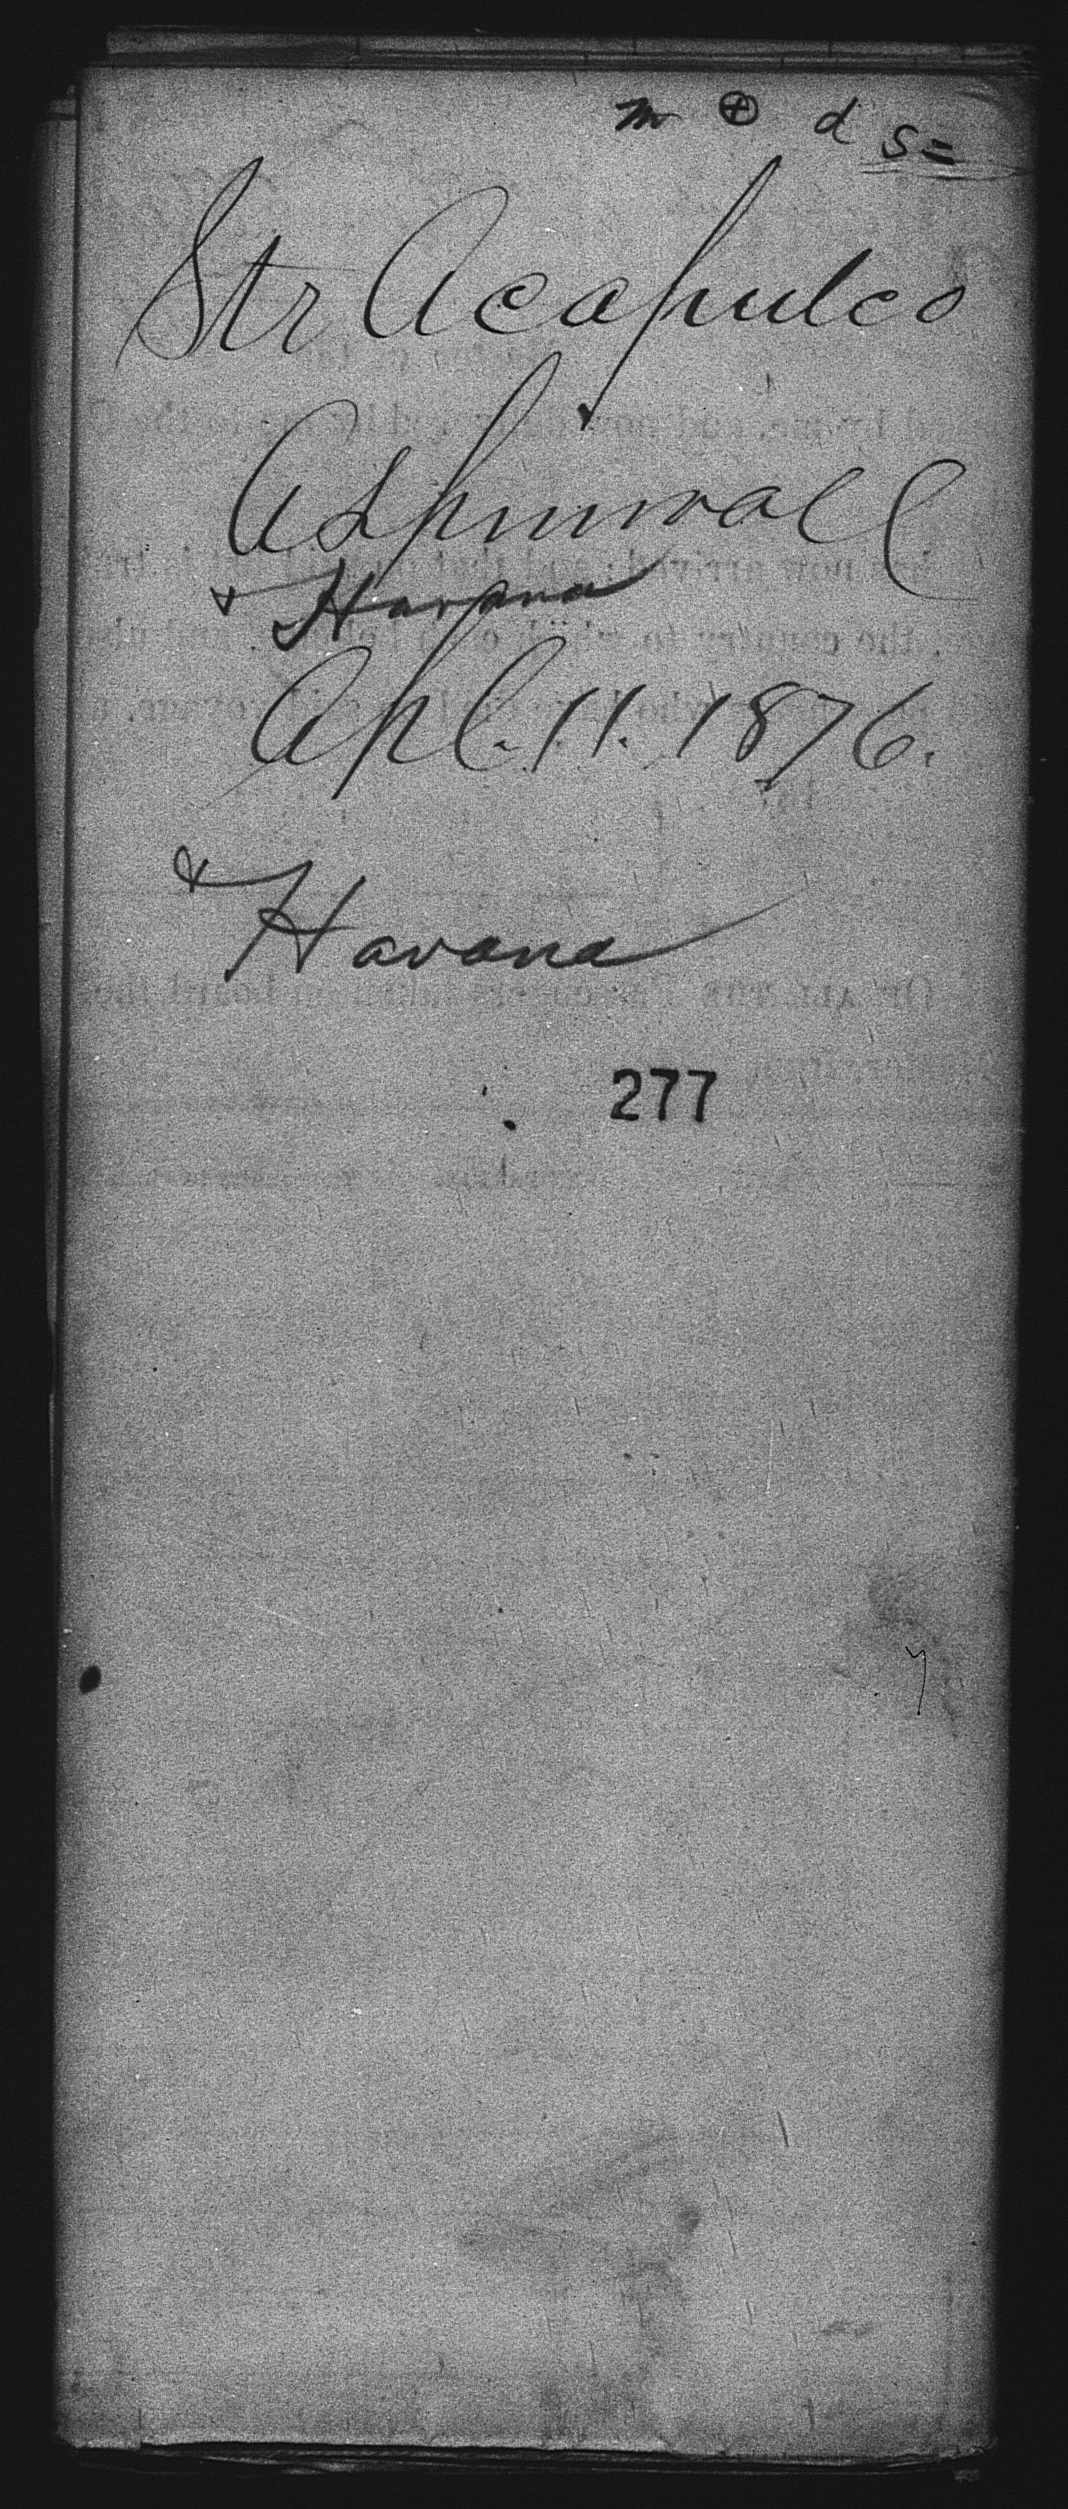 m ⊕ d S=
Str Acapulco
Aspinwall
& Havana
Apl. 11. 1876.
& Havana
277